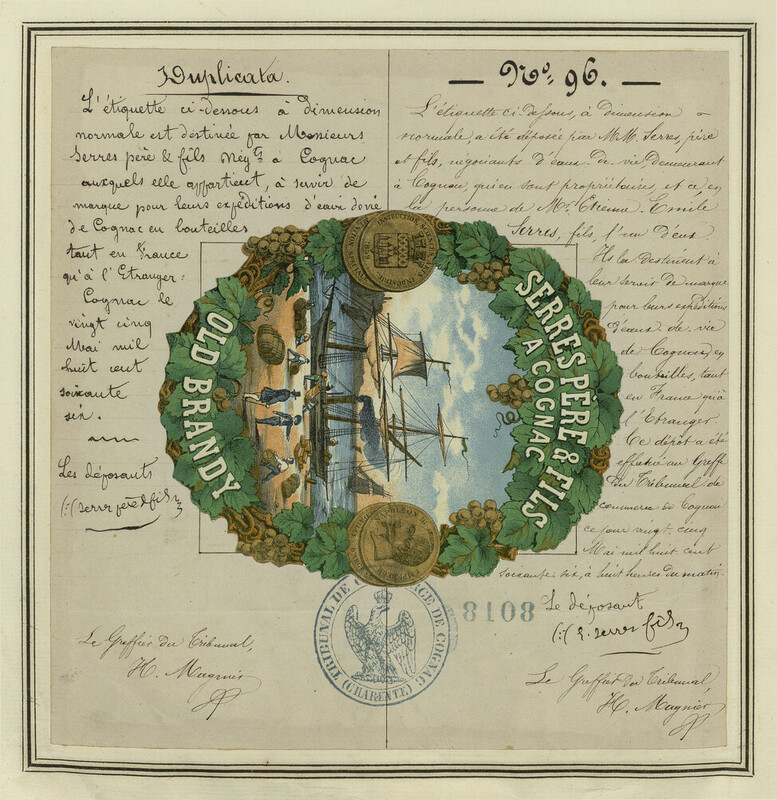 Duplicata.
L'étiquette ci-dessous à dimension
normale est destinée par Messieurs
Serres père & fils Négts à Cognac
auxquels elle appartient, à servir de
marque pour leurs expéditions d'eau de vie
de Cognac en bouteilles
tant en France
qu'à l'Etranger:
Cognac le
vingt cinq
Mai mil
huit cent
soixante
six.
Les déposants
(:( Serres père & fils
Le Greffier du Tribunal,
H. Magnier
— No. 96. —
L'étiquette ci-dessous, à dimension
normale, a été déposée par M.M. Serres, père
et fils, négociants d'eaux de vie, demeurant
à Cognac, qui en sont propriétaires, et ce, en
la personne de Mr. Etienne Emile
Serres, fils, l'un d'eux.
Ils la destinent à
leur servir de marque
pour leurs expéditions
d'eaux de vie
de Cognac, en
bouteilles, tant
en France qu'à
l'Etranger
Ce dépôt a été
effectué au Greffe
du Tribunal de
commerce de Cognac
ce jour vingt cinq
Mai mil huit cent
soixante six, à huit heures du matin.
Le déposant
(:( E. Serres fils
Le Greffier du Tribunal,
H. Magnier
SERRES PÈRE & FILS
A COGNAC
OLD BRANDY
TRIBUNAL DE COMMERCE DE COGNAC
(CHARENTE)
8108